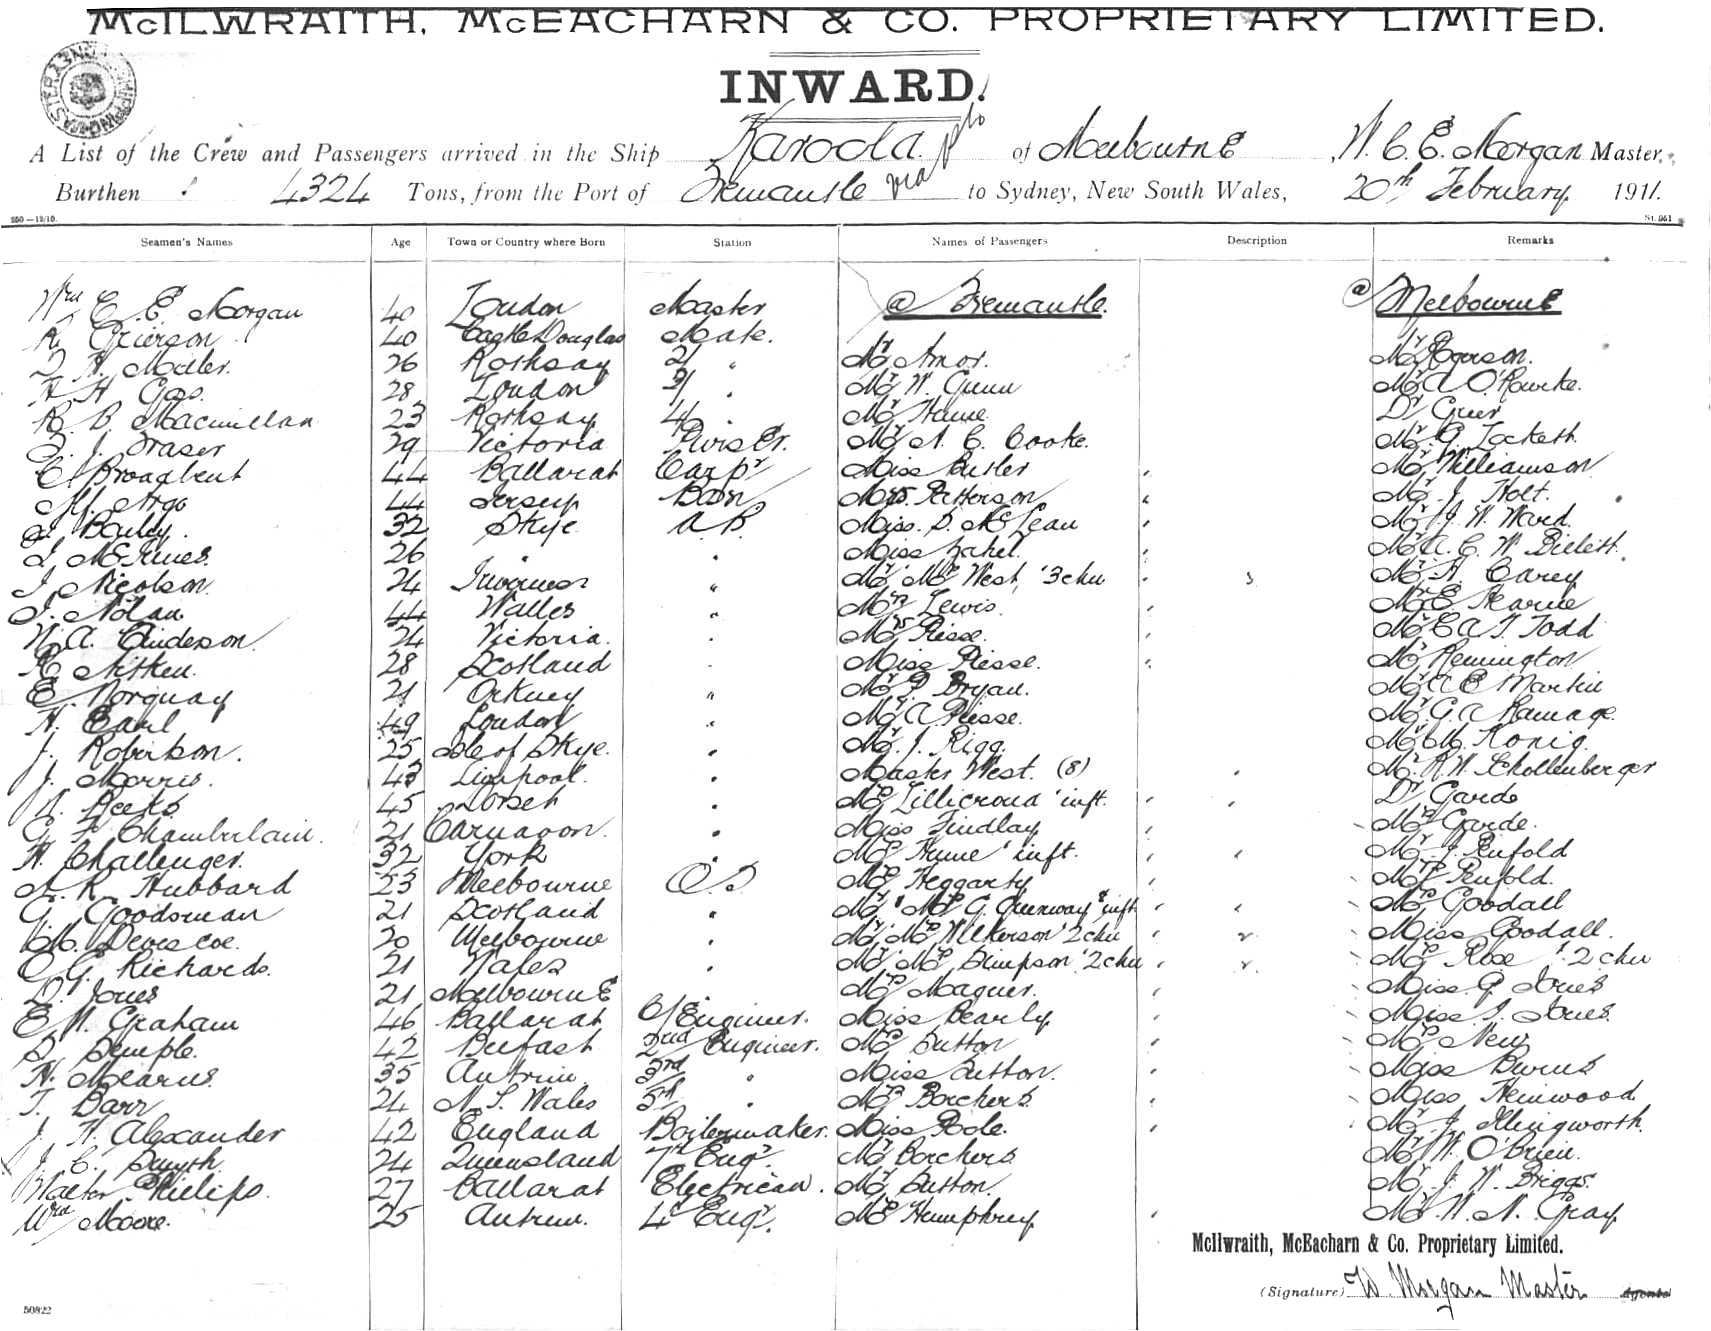 McILWRAITH, McEACHARN & CO. PROPRIETARY LIMITED.
INWARD.
A List of the Crew and Passengers arrived in the Ship Karoola of Melbourne, W. C. E. Morgan Master,
Burthen 4324 Tons, from the Port of Fremantle via pts to Sydney, New South Wales, 20th February 1911.
250—12/10. St. 951
Seamen's Names Age Town or Country where Born Station Names of Passengers Description Remarks
Wm C. E. Morgan 40 London Master @ Fremantle. @ Melbourne
R. Grierson 40 Castle Douglas Mate.
Miller. 26 Rothsay 2/ " Mr Amor. Mr Egerson.
28 London 3/ " Mr W. Gunn Mr A O'Rourke.
R. B. Macmillan 23 Rothsay 4/ " Mr Hume Dr Grier
J. Fraser 29 Victoria Mr A. C. Cooke. Mr G. Lockett
C. Broadbent 44 Ballarat Carpr Miss Butler Mr Williamson
M. Argo 44 Jersey Bosn Mrs Patterson Mr J. Holt.
J. Bailey. 32 Skye A.B. Miss. S. McLean Mr J. W. Ward.
McInnes. 26 " " Miss Mr A. C. W.
J. Nicolson. 24 Inverness " Mr & Mrs West, 3 chn 3 Mr H. Carey
J. Nolan 44 Wales " Mrs Lewis. Mr E. Hearne
W. A. Anderson. 24 Victoria. " Mrs Piesse. Mr C A T Todd
R. Aitken. 28 Scotland " Miss Piesse. Mr Remington
E. Norquay 21 Orkney " Mr P. Bryan. Mr A E Martin
H. Earl 49 London " Mr A Piesse. Mr G. A Ramage.
J. Robertson. 25 Isle of Skye. " Mr J. Rigg. Mr M. Konig.
J. Morris. 43 Liverpool. " Master West. (8) Mr R. W. Schollenberger
Reeks 45 Dorset " Mrs & inft. Dr Garde
G. F. Chamberlain. 21 Carnavon. " Miss Findlay Mrs Garde.
H. Challenger. 32 York " Mrs Hume & inft. Mr J. Penfold
A. R. Hubbard 23 Melbourne O.S Mrs Heggarty Mrs Penfold.
G. Goodsman 21 Scotland " Mr & Mrs G. Greenway & inft Mrs Goodall
M. 20 Melbourne " Mr & Mrs Wilkerson & 2 chn 2 Miss Goodall.
C. G. Richards. 21 Wales " Mr & Mrs Simpson & 2 chn 2 Mrs Rose & 2 chn
D. Jones 21 Melbourne " Mrs Maguer. Miss G. Jones
E. W. Graham 46 Ballarat C/Engineer. Miss Bearly Miss I. Jones.
S. Semple. 42 Belfast 2nd Engineer. Mrs Sutton Mrs New
H. Mearns. 35 Antrim 3rd " Miss Sutton. Miss Burns
T. Barr 24 N. S. Wales 5th " Mrs Borchers. Miss Heinwood
J. H. Alexander 42 England Boilermaker. Miss Pole. Mr J. Illingworth.
J. C. Smyth. 24 Queensland 7th Engr. Mr Borchers. Mr W. O'Brien.
Walter Phillips. 27 Ballarat Electrican. Mr Sutton. Mr J. W. Briggs.
Wm Moore. 25 Antrim. 4th Engr. Mrs Humphrey Mr W. N. Gray
McIlwraith, McEacharn & Co. Proprietary Limited.
(Signature) W Morgan Master Agents
50822